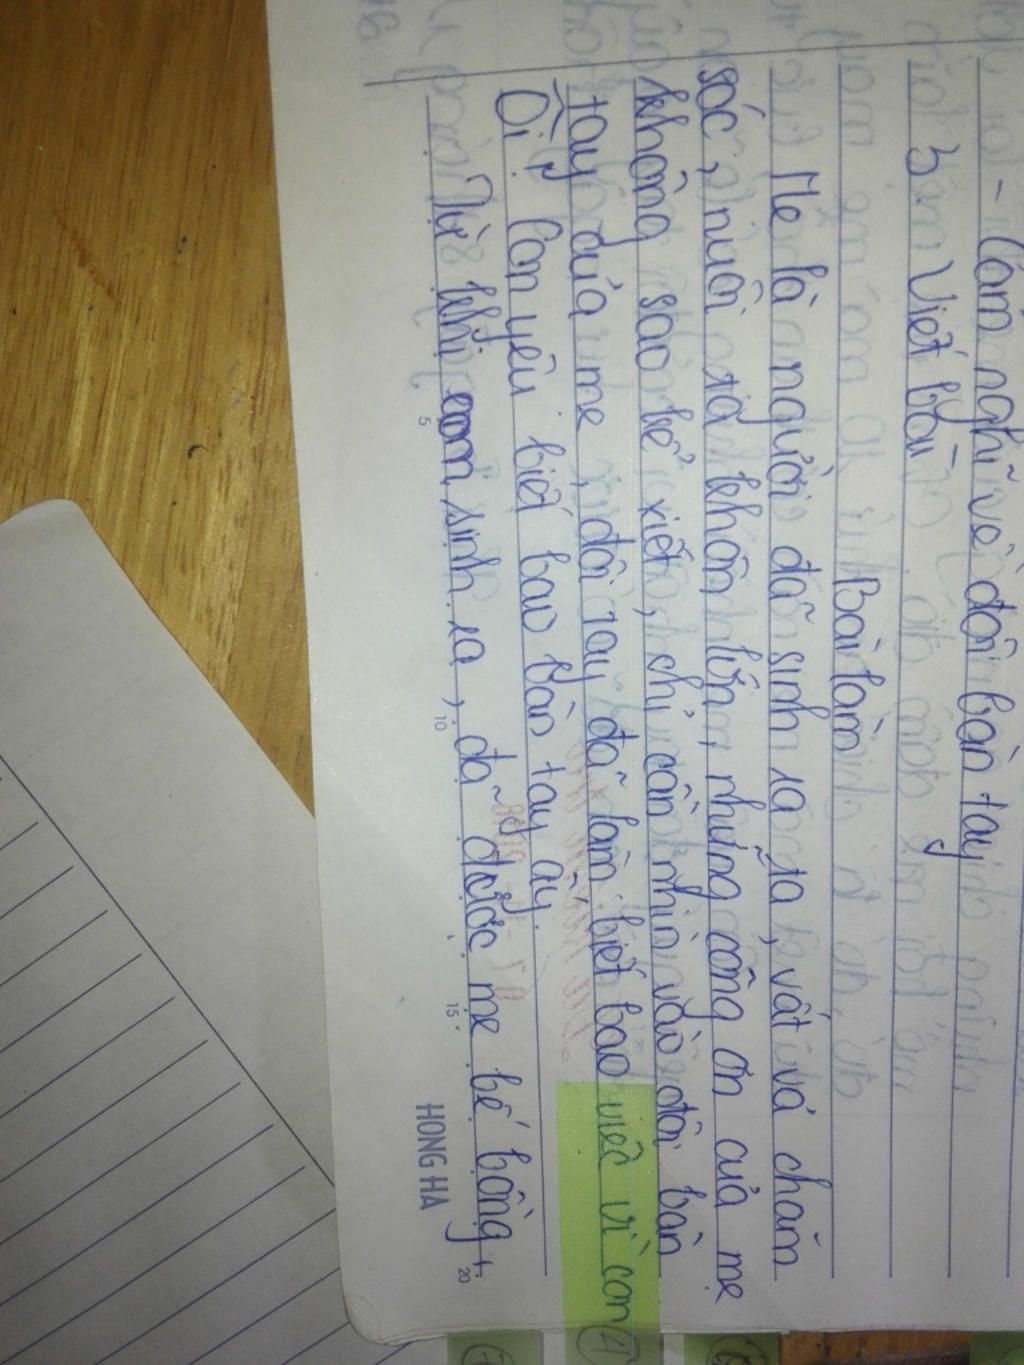 - Cảm nghĩ về đôi bàn tay
3 Viết bài
Bài làm
Mẹ là người đã sinh ra ta, vất vả chăm
sóc, nuôi ta khôn lớn, những công ơn của mẹ
không sao kể xiết, chỉ cần nhìn vào đôi bàn
tay của mẹ, đôi tay đã làm biết bao việc vì con
Ôi, con yêu biết bao bàn tay ấy.
Từ khi con sinh ra, đã được mẹ bế bồng,
5 10 15 20
HONG HA